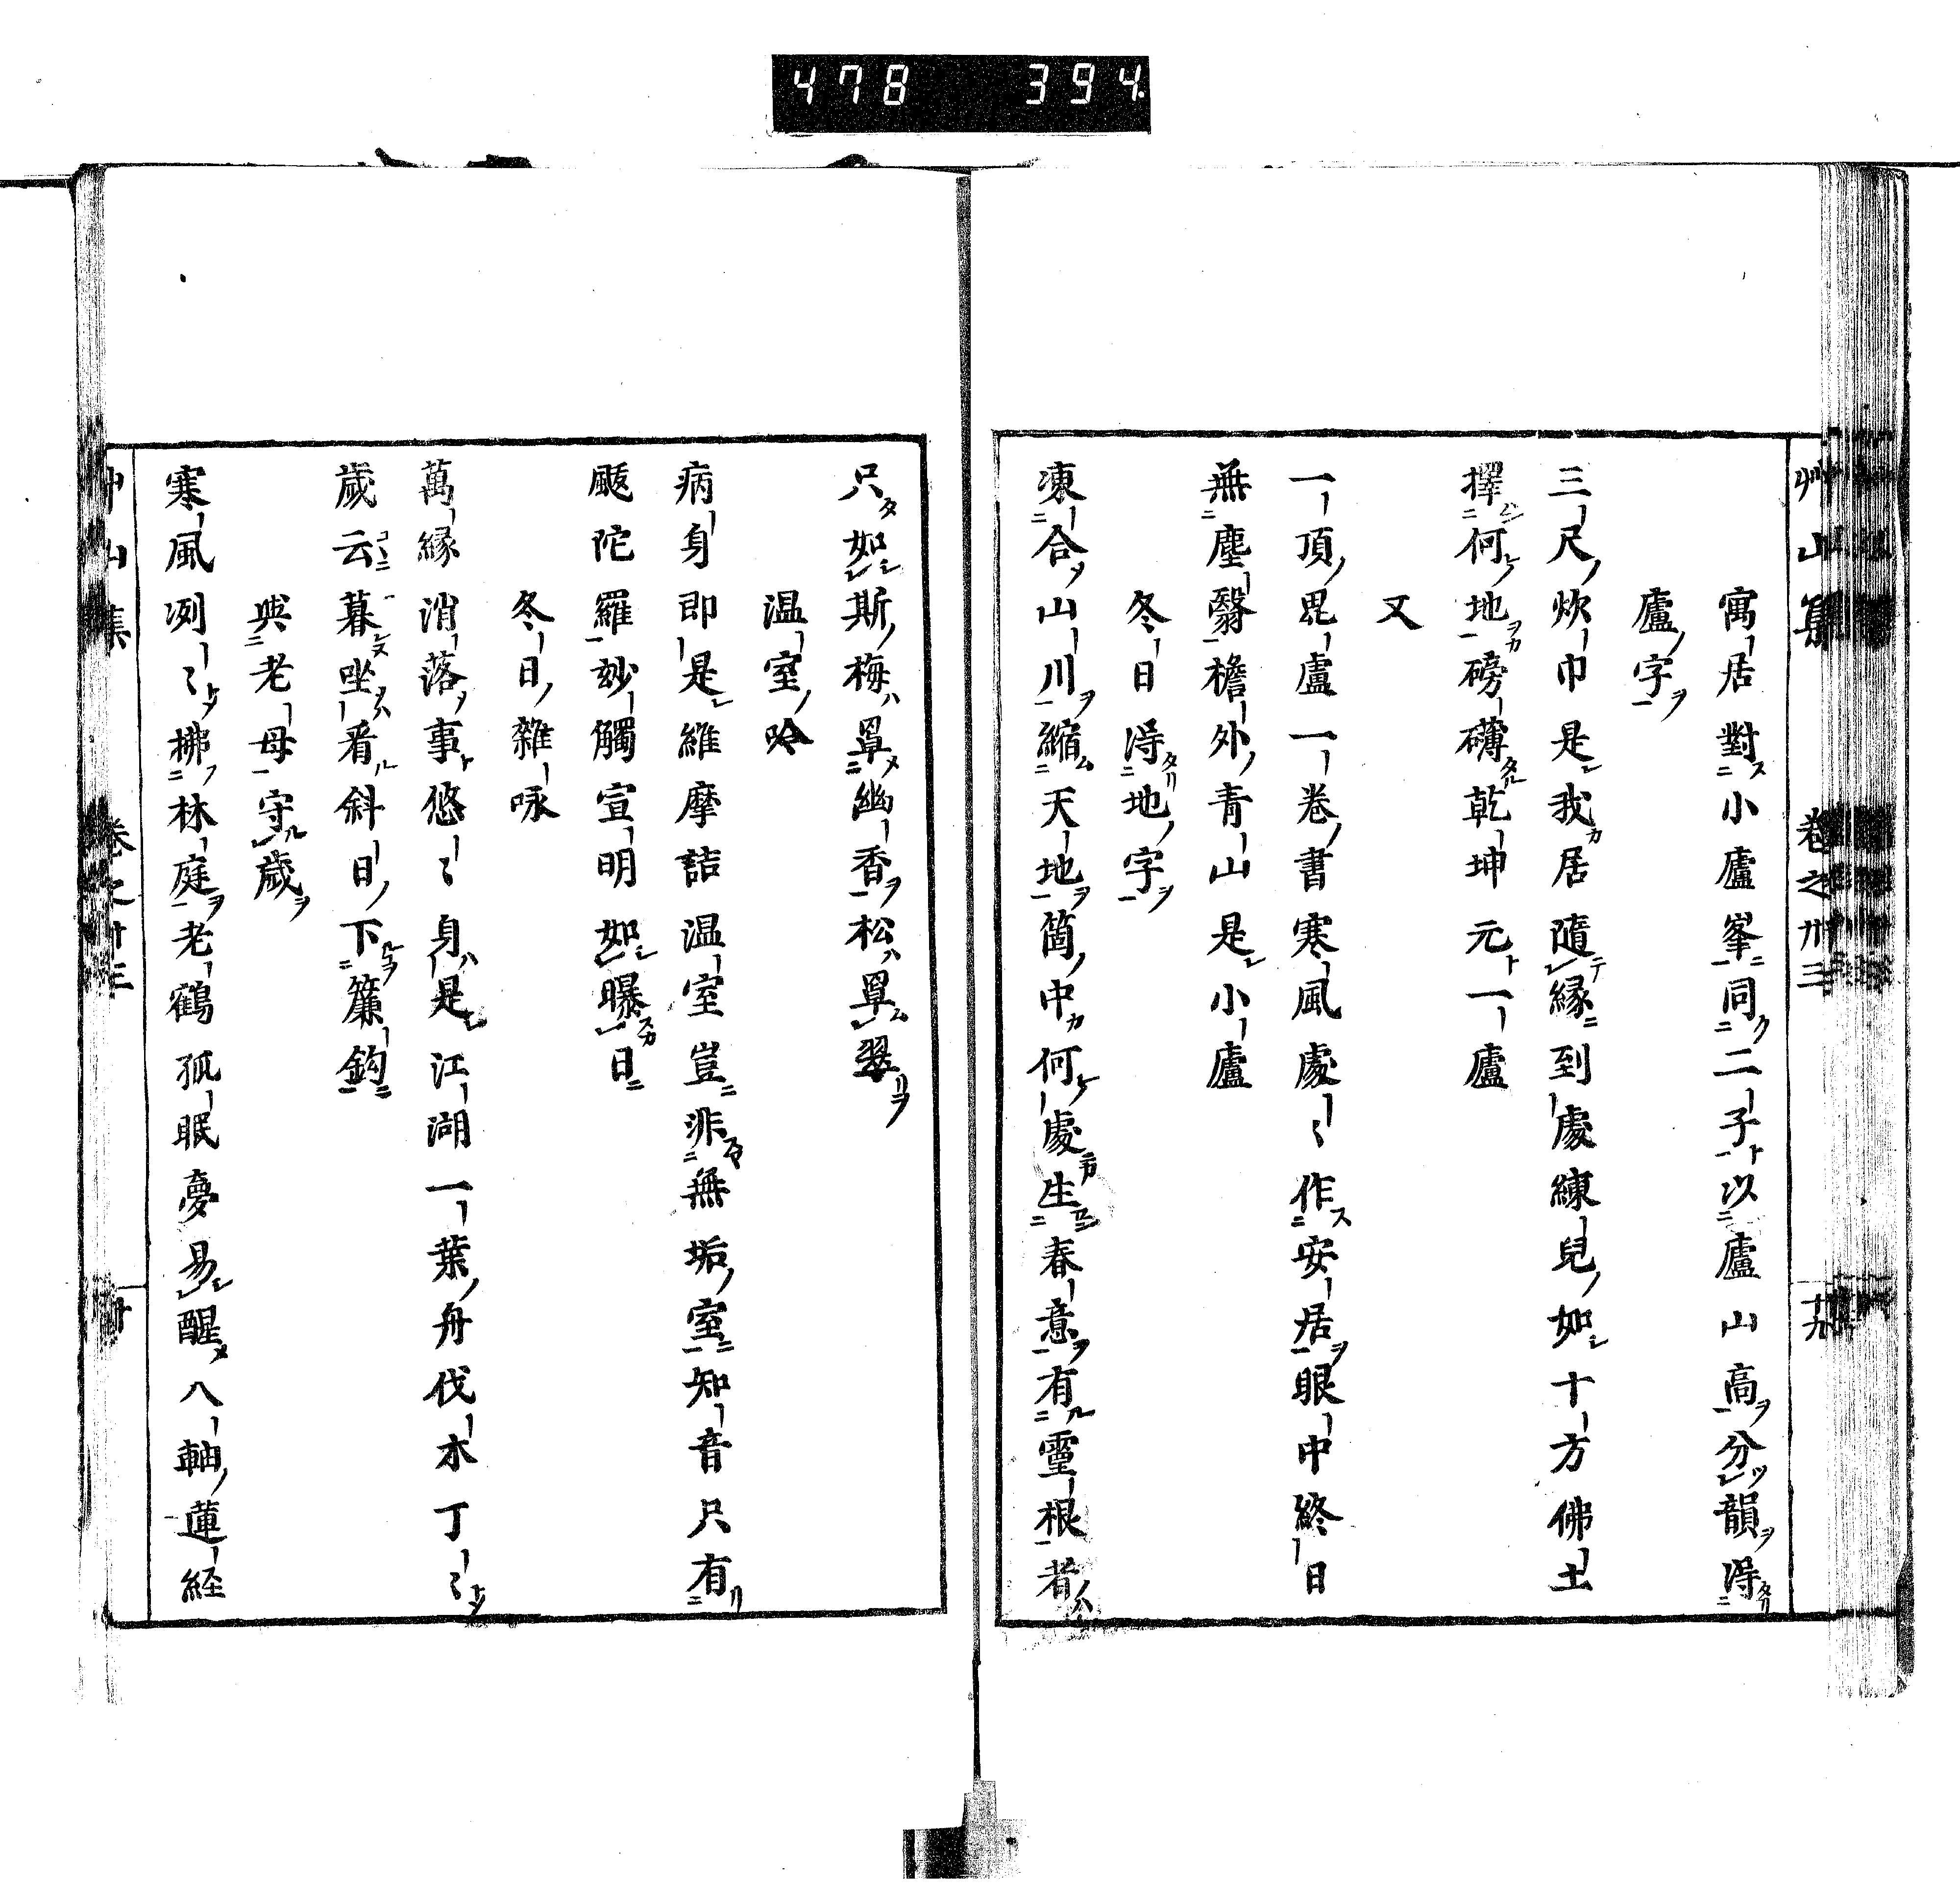 478 394.
艸山集 卷之卅三 十九
寓居對小廬峯同二子以廬山高分韻得
廬字
三尺炊巾是我居隨縁到處練兒如十方佛土
擇何地磅礴乾坤元一廬
又
一頂毘盧一卷書寒風處〻作安居眼中終日
無塵翳檐外青山是小廬
冬日得地字
凍合山川縮天地箇中何處生春意有靈根者
只如斯梅罩幽香松罩翠
温室吟
病身即是維摩詰温室豈非無垢室知音只有
颰陀羅玅觸宣明如曝日
冬日雜咏
萬縁消落事悠〻身是江湖一葉舟伐木丁〻
歳云暮坐看斜日下簾鈎
與老母守歳
寒風冽〻拂林庭老鶴孤眠夢易醒八軸蓮経